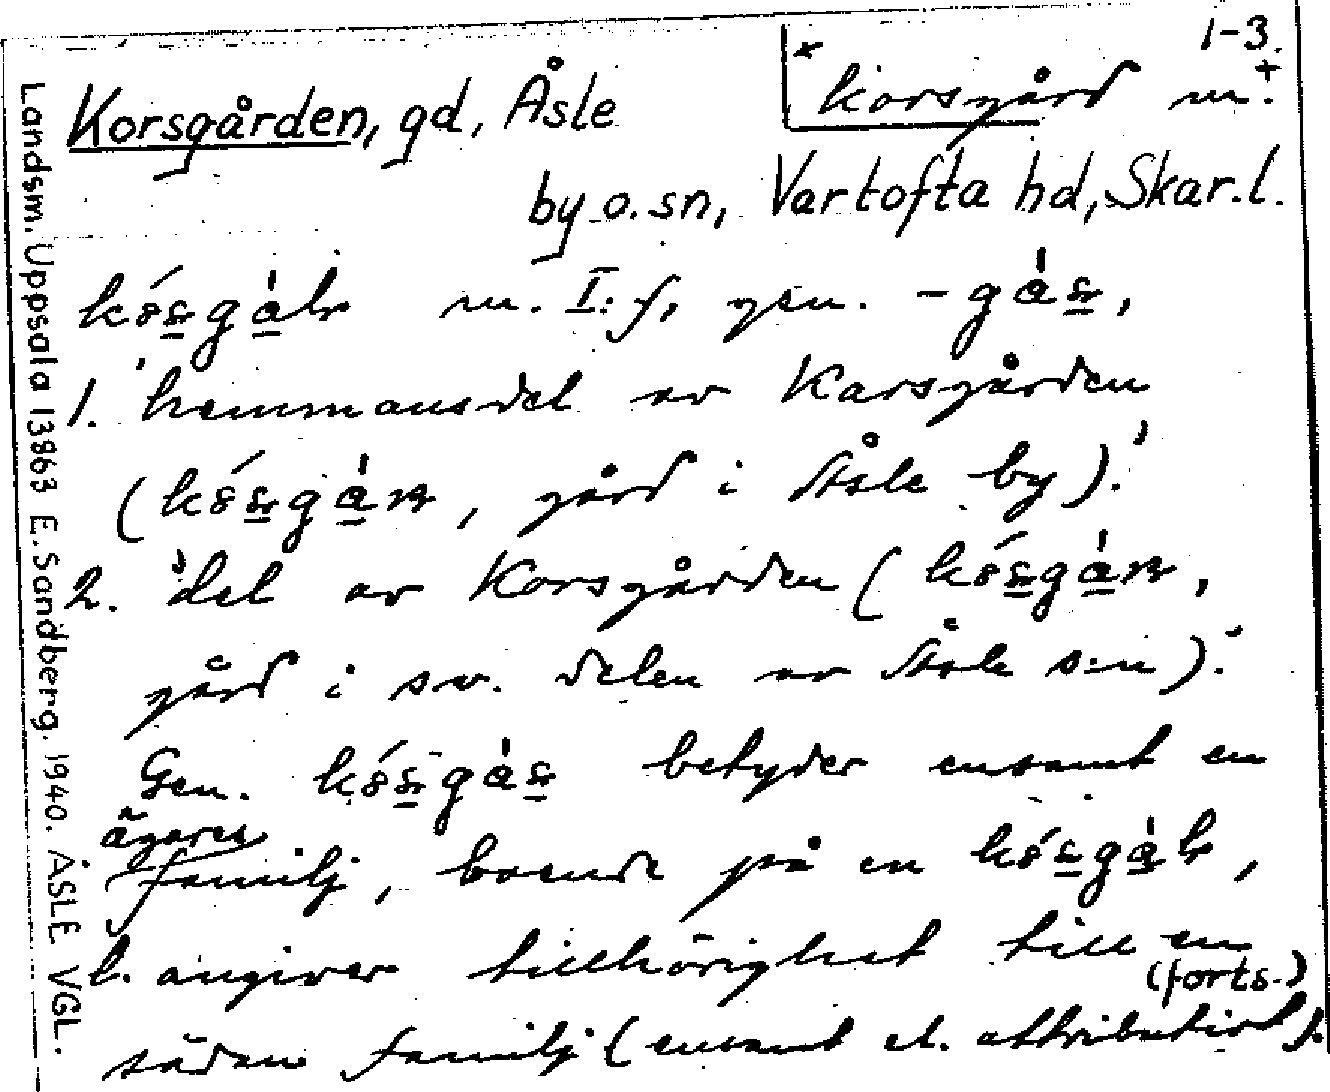 1-3.
Korsgården, gd, Åsle
* korsgård m. +
by o. sn, Vartofta hd, Skar. l.
m. I: f, gen.
1. 'hemmansdel av Korsgården
(, gård i Åsle by).'
2. 'del av Korsgården (,
gård i sv. delen av Åsle s:n).'
Gen. betyder ensamt en
ägares
familj, boende på en ,
l. angiver tillhörighet till en
sådan familj (ensamt el. attributivt).
(forts.)
Landsm. Uppsala 13863 E. Sandberg. 1940. ÅSLE VGL.